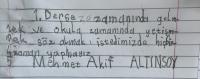 1. Derse zamanında gelmek
ve okula zamanında yetişmek
söz almak istediğimizde hiçbir
zaman yapmayız
Mehmet Akif ALTINSOY